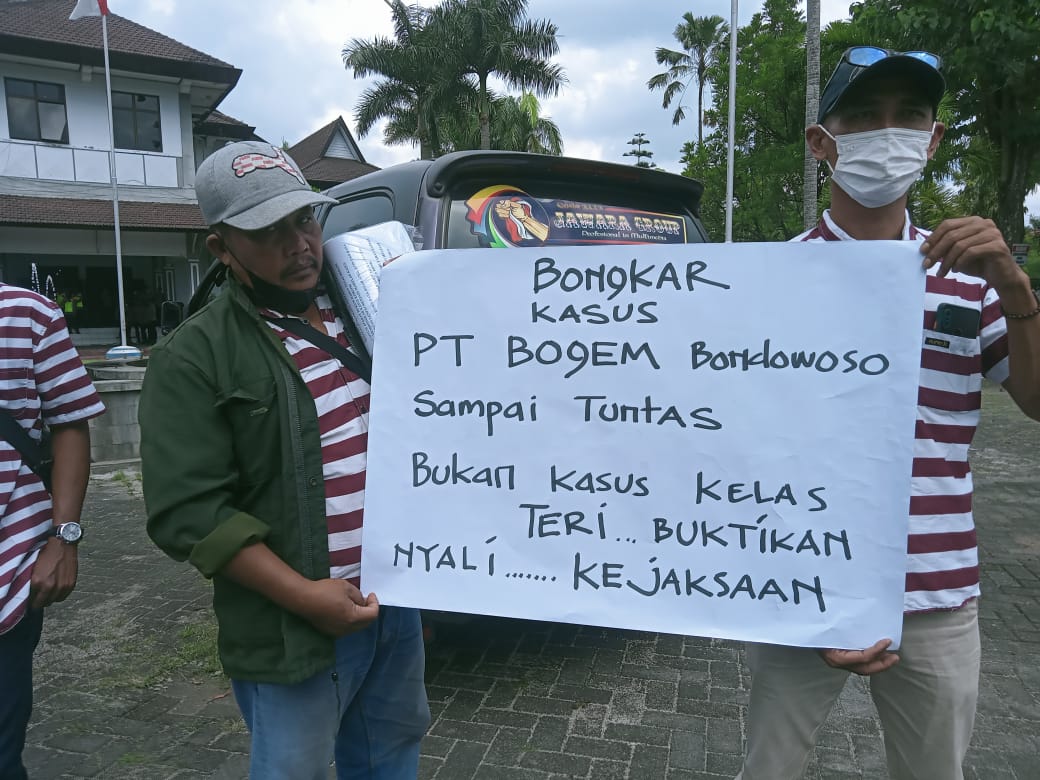 JAWARA GROUP
Profesional is Multimedia
BONGKAR
KASUS
PT BOGEM Bondowoso
Sampai Tuntas
Bukan Kasus KELAS
TERI... BUKTIKAN
NYALI....... KEJAKSAAN